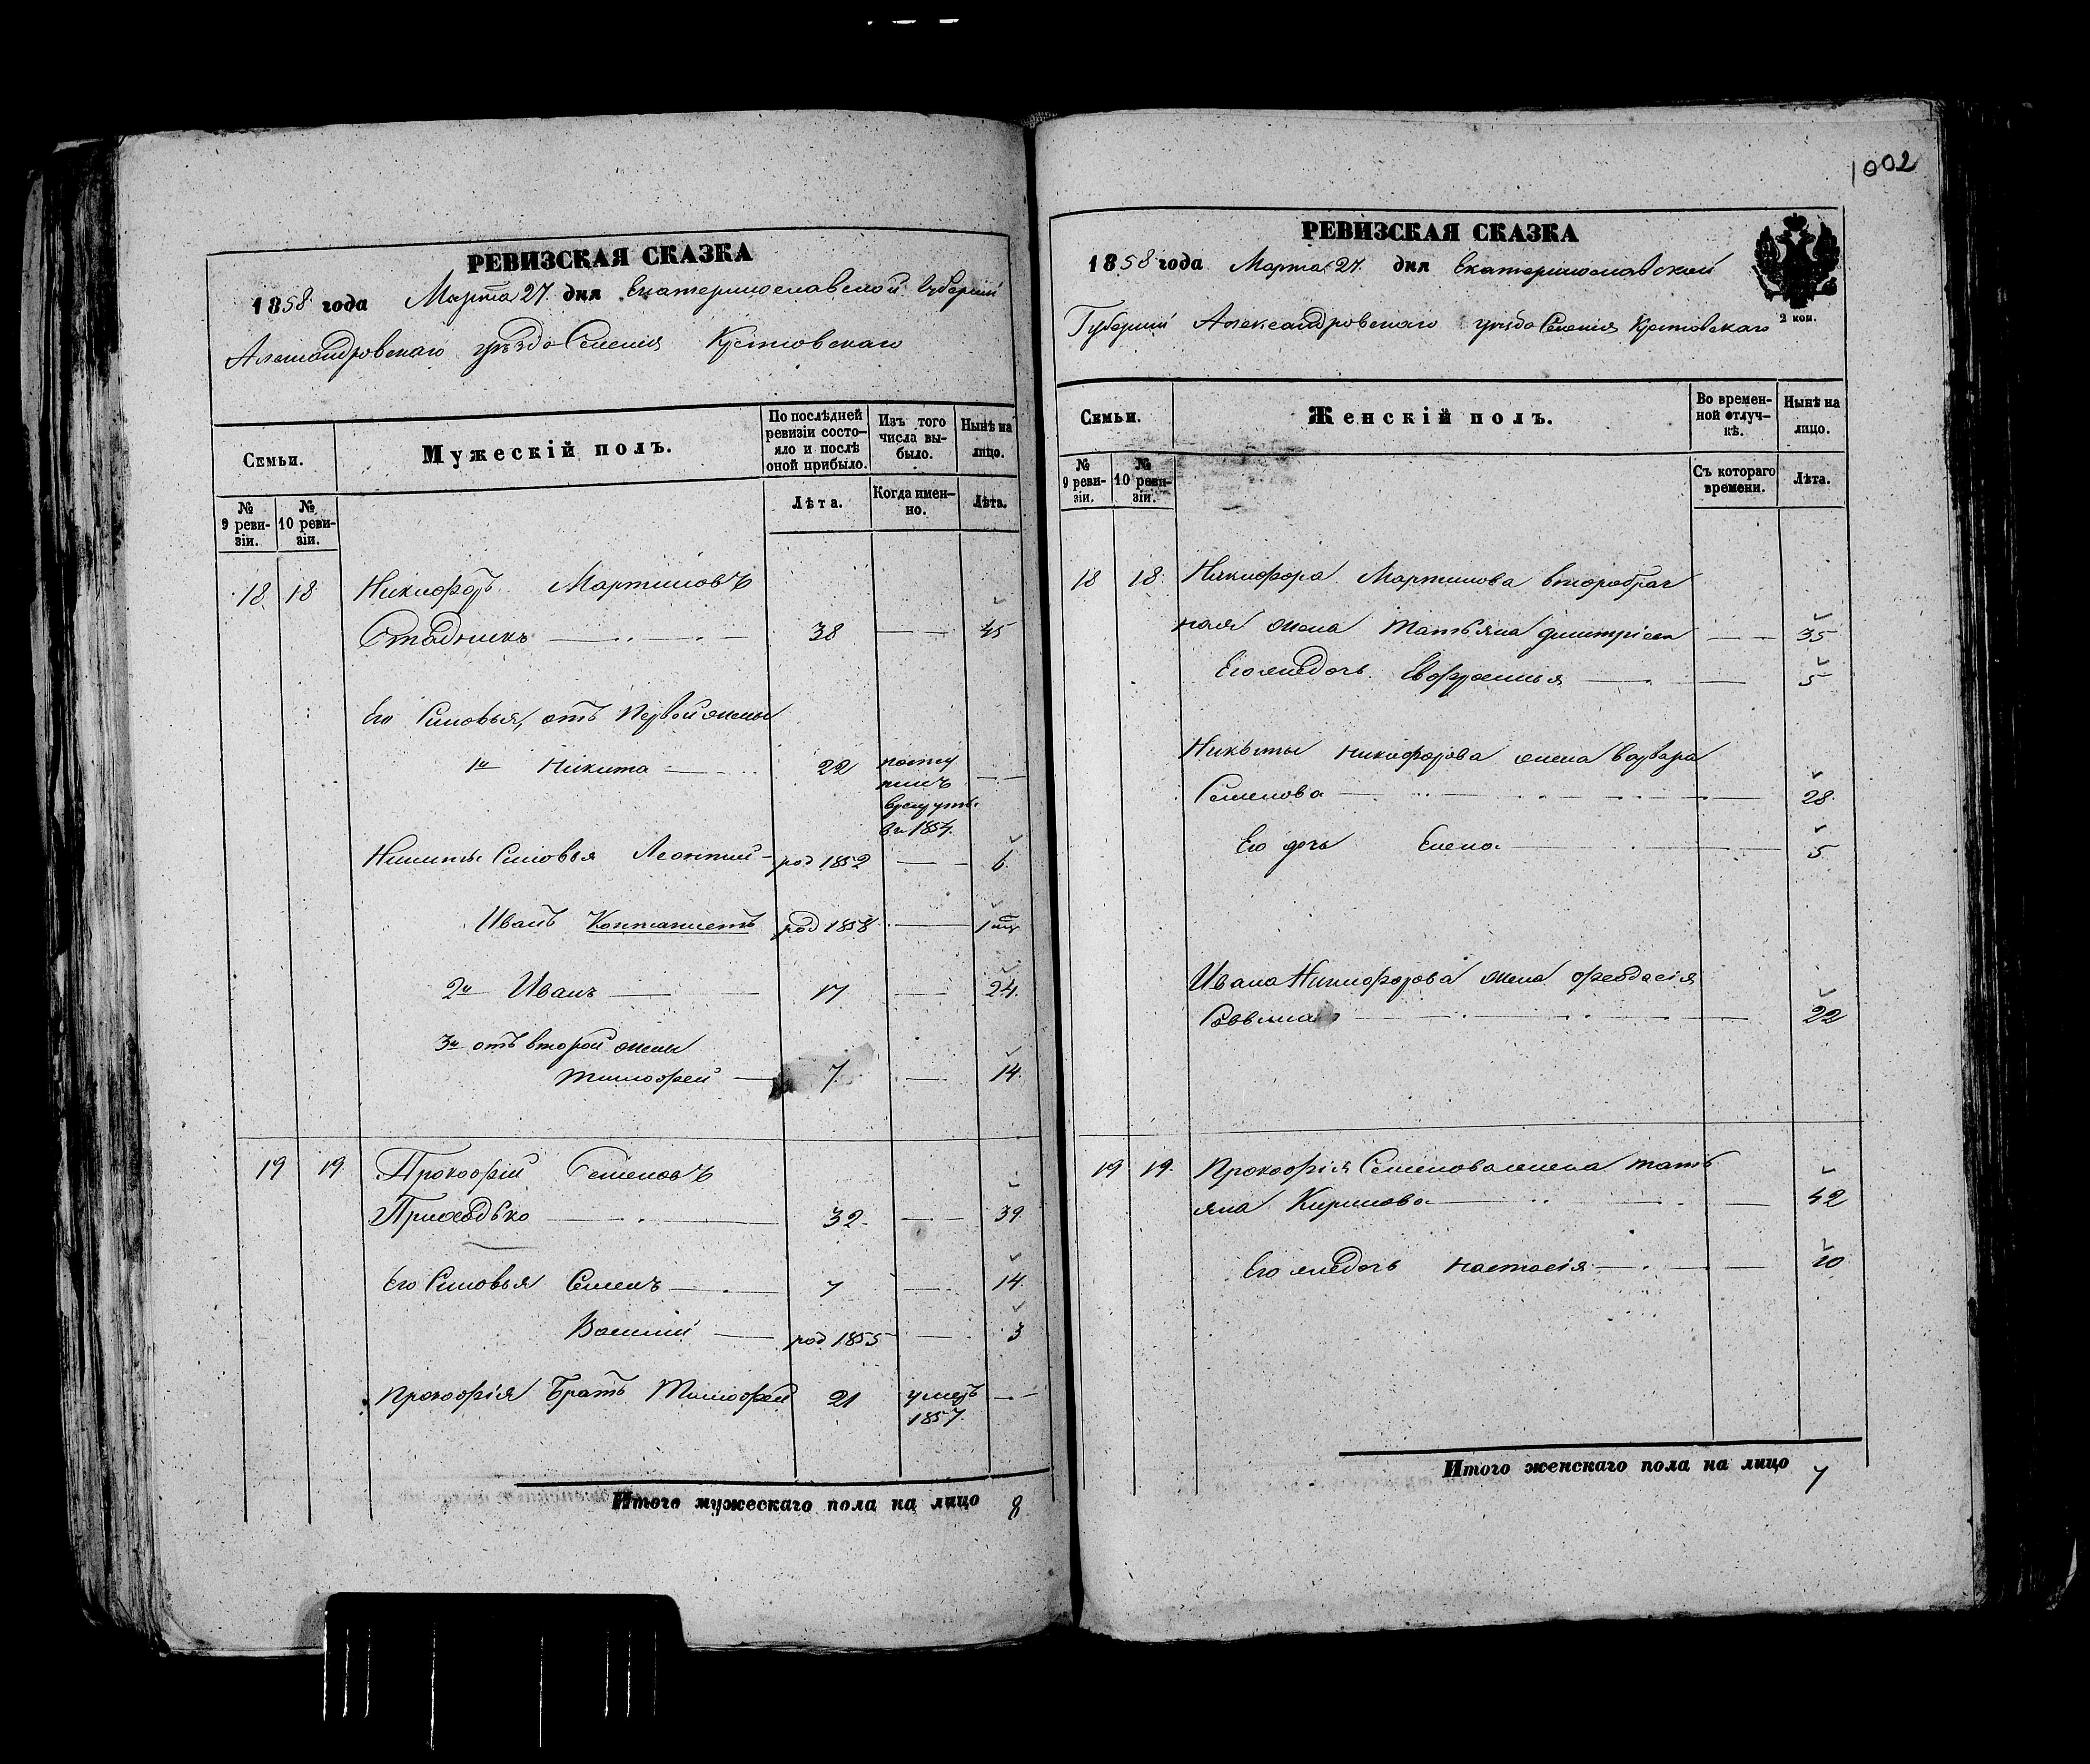 1002
РЕВИЗСКАЯ СКАЗКА
1858 года Марта 27 дня Екатеринославской Губернии
Александровского уезда Селения
Семьи.
Мужескій полъ.
По послѣдней ревизіи состо-яло и послѣ оной прибыло.
Изъ того числа вы-было.
Нынѣ на лицо.
№ 9 реви-зіи.
№ 10 реви-зіи.
Лѣта.
Когда имен-но.
Лѣта.
18 18 Никифоръ Мартиновъ
38 45
Его Синовья, отъ Первой жены
1й Никита 22
в 1854.
Никиты Синовья Леонтий род 1852 6
Иванъ род 1858
2й Иванъ 17 24
3й отъ второй жены
Тимофей 7 14
19 19 Прокофий Семеновъ
Приходько 32 39
Его Синовья Семенъ 7 14
Василий род 1855 3
Прокофія Братъ Тимофей 21 умеръ
1857.
Итого мужескаго пола на лицо 8
РЕВИЗСКАЯ СКАЗКА
1858 года Марта 27 дня Екатеринославской
2 коп.
Губернии Александровского уезда Селения
Семьи.
Женскій полъ.
Во времен-ной отлуч-кѣ.
Нынѣ на лицо.
№ 9 реви-зіи.
№ 10 реви-зіи.
Съ котораго времени.
Лѣта.
18 18 Никифора Мартинова второбрач
ная жена Татьяна 35
5
Никиты Никифорова жена Варвара
Семенова 28
Его дчь Елена 5
Ивана Никифорова жена Феодосія
22
19 19 Прокофія Семенова жена Тать
яна Кирилова 42
Настасія 10
Итого женскаго пола на лицо 7